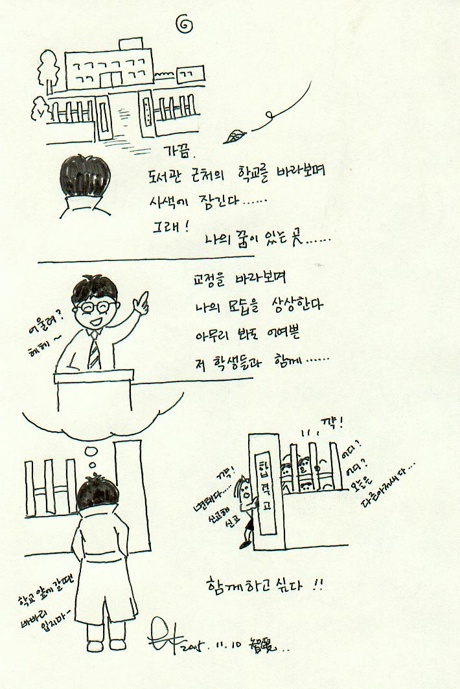 ⑥
가끔.
도서관 근처의 학교를 바라보며
사색에 잠긴다......
그래!
나의 꿈이 있는 곳......
어울려?
헤헤~
교정을 바라보며
나의 모습을 상상한다
아무리 봐도 어여쁜
저 학생들과 함께......
꺅!
꺅!
변태다...
신고해
신고
어디?
어디?
오늘은
학교앞에 갈땐
바바리
입지마~
함께하고 싶다 !!
2005. 11. 10